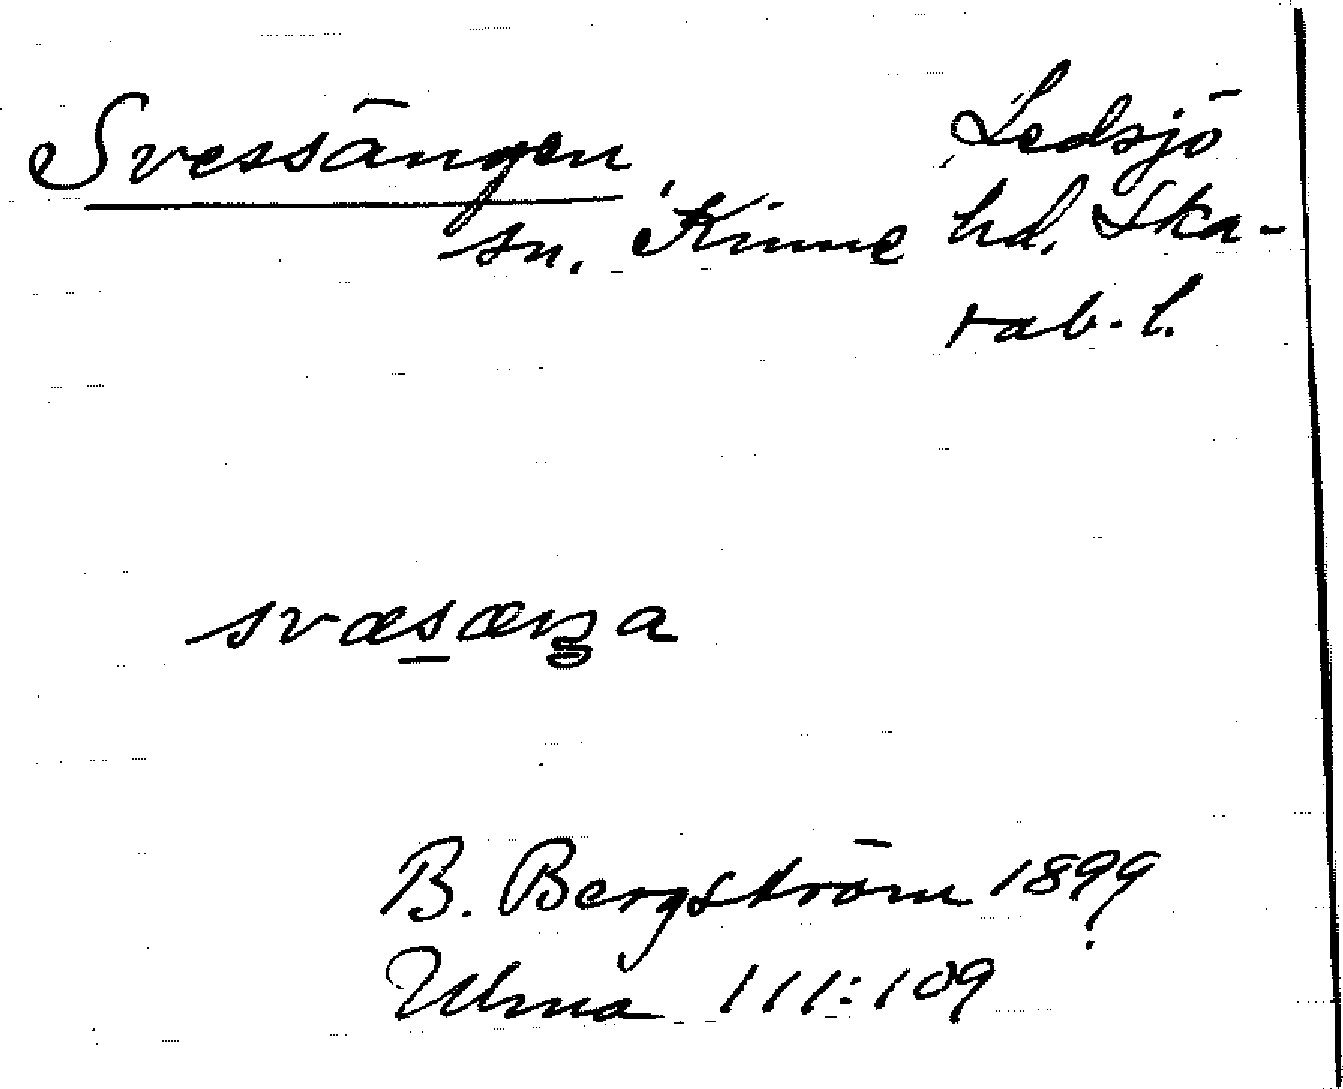 Svessängen, Ledsjö
sn. Kinne hd. Ska-
rab. l.
svæsæŋa
B. Bergström 1899.
Ulma 111:109